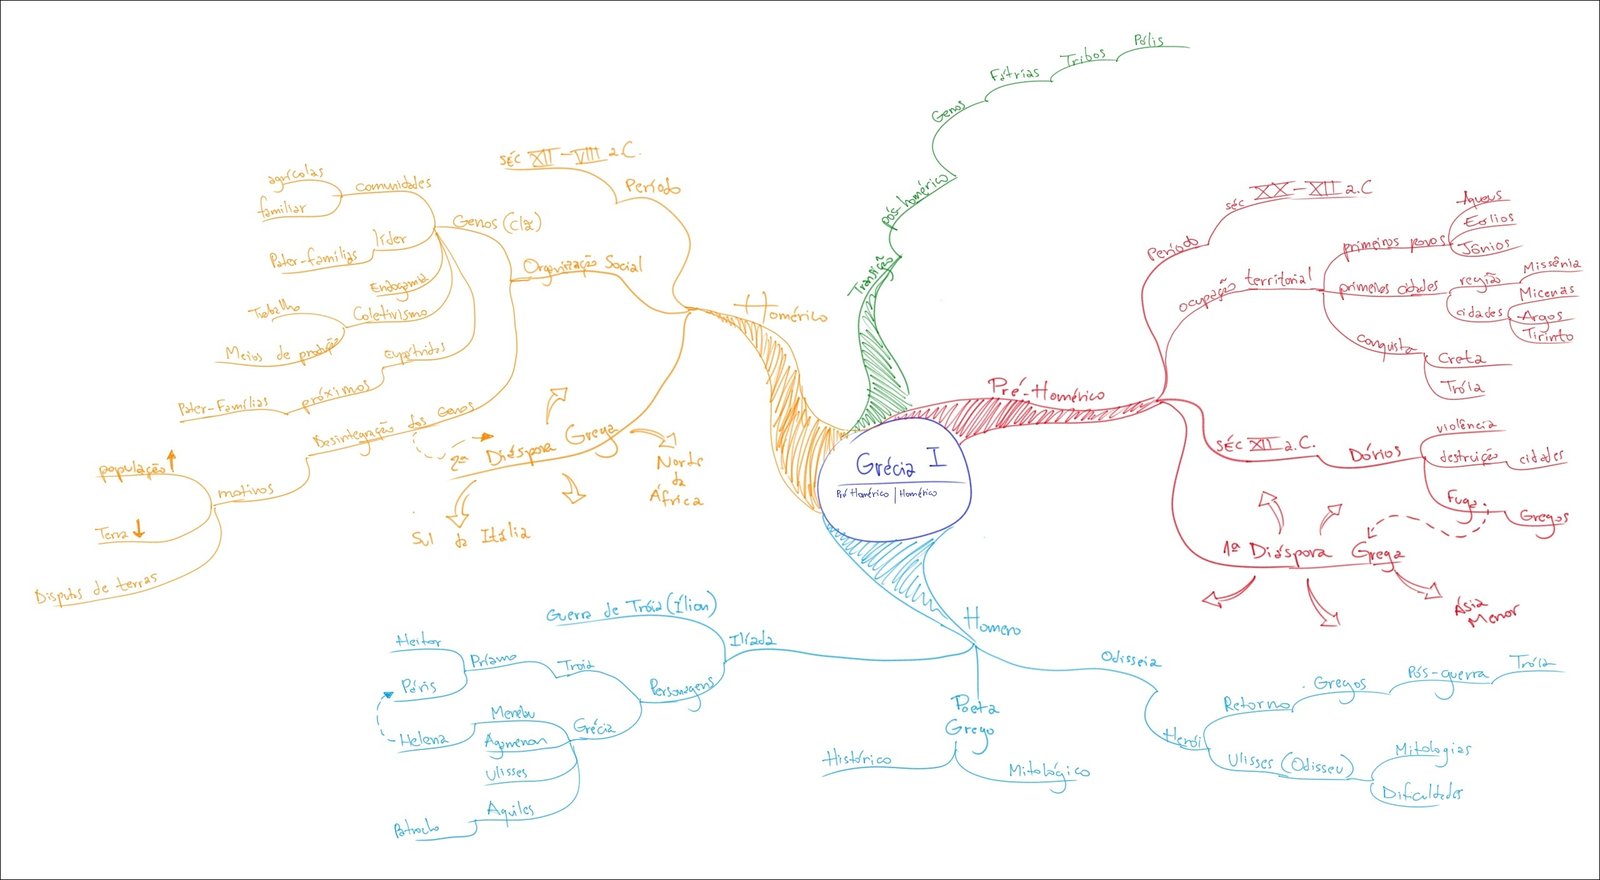 Grécia I
Pré Homérico | Homérico
Pré-Homérico
Período
séc XX-XII a.C
ocupação territorial
primeiros povos
Aqueus
Eólios
Jônios
primeiras cidades
região
Missênia
cidades
Micenas
Argos
Tirinto
conquista
Creta
Tróia
SÉC XII a.C.
Dórios
violência
destruição
cidades
Fuga
Gregos
1ª Diáspora Grega
Ásia
Menor
Homero
Odisseia
Herói
Retorno
Gregos
Pós-guerra
Tróia
Ulisses (Odisseu)
Mitologias
Dificuldades
Poeta
Grego
Histórico
Mitológico
Ilíada
Guerra de Tróia (Ílion)
Personagens
Troia
Príamo
Heitor
Páris
Grécia
Menelau
Helena
Agamenon
Ulisses
Aquiles
Pátroclo
Homérico
Período
SÉC XII-VIII a.C.
Organização Social
Genos (clã)
comunidades
agrícolas
familiar
líder
Pater-famílias
Endogamia
Coletivismo
Trabalho
Meios de produção
eupátridas
próximos
Pater-Famílias
Desintegração dos Genos
motivos
população ↑
Terra ↓
Disputas de terras
2ª Diáspora Grega
Norte
da
África
Sul da Itália
Transição
Pós-homérico
Genos
Fátrias
Tribos
Pólis